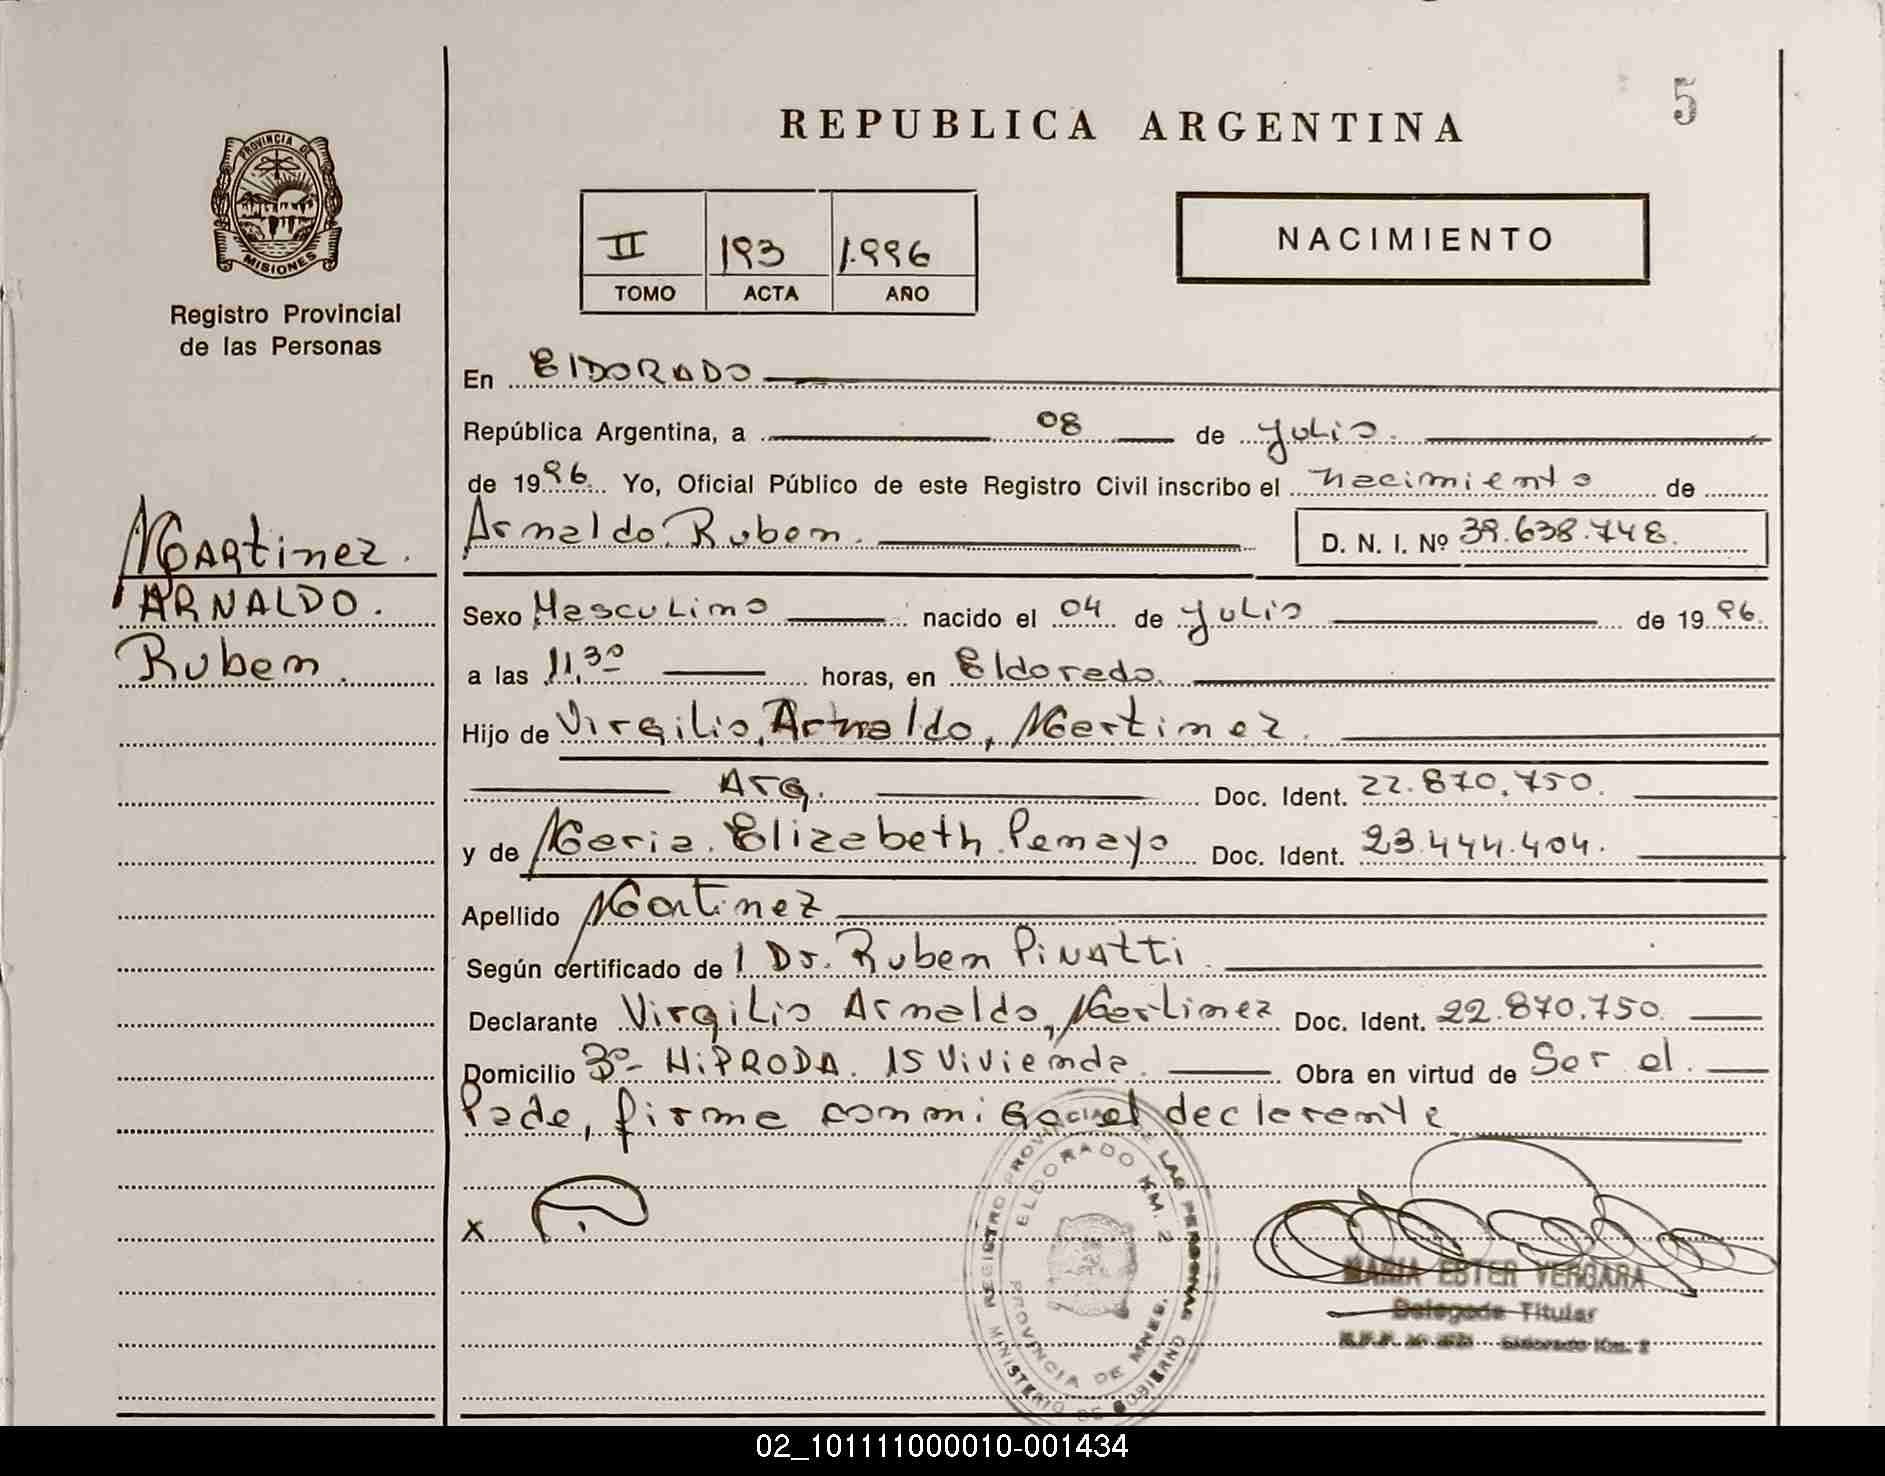 5
REPUBLICA ARGENTINA
PROVINCIA DE
MISIONES
Registro Provincial
de las Personas
II 193 1.996
TOMO ACTA AÑO
NACIMIENTO
En ElDORADO
República Argentina, a 08 de Julio.
de 1996. Yo, Oficial Público de este Registro Civil inscribo el nacimiento de
Martinez.
ARNALDO.
Ruben.
Arnaldo Ruben. D. N. I. Nº 39.638.748.
Sexo Masculino nacido el 04 de Julio de 1996.
a las 11,30 horas, en Eldorado.
Hijo de Virgilio, Arnaldo, Martinez.
Arg. Doc. Ident. 22.870.750.
y de Maria Elizabeth Pemayo Doc. Ident. 23.444.404.
Apellido Martinez
Según certificado de 1 Dr. Ruben Pinatti.
Declarante Virgilio Arnaldo, Martinez Doc. Ident. 22.870.750.
Domicilio 3º- HiPRODA. 15 Vivienda. Obra en virtud de Ser el.
Pade, firma conmigo el declarante
x
REGISTRO PROVINCIAL DE LAS PERSONAS
ELDORADO KM. 2
PROVINCIA DE MNES.
MINISTERIO DE GOBIERNO
MARIA ESTER VERGARA
Delegada Titular
Eldorado Km. 2
02_101111000010-001434